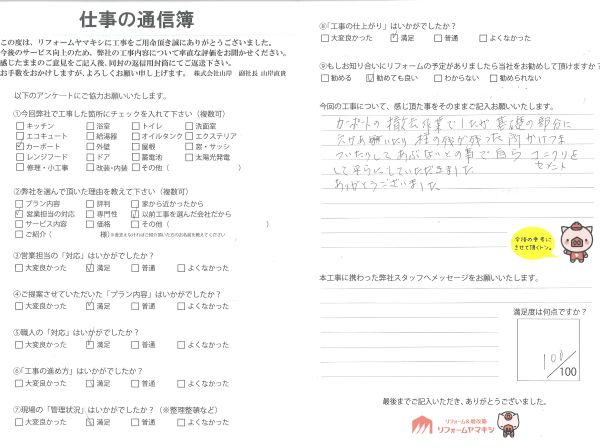 仕事の通信簿
この度は、リフォームヤマキシに工事をご用命頂き誠にありがとうございました。
今後のサービス向上のため、弊社の工事内容について率直な評価をお聞かせください。
感じたままのご意見をご記入後、同封の返信用封筒にてご返送下さい。
お手数をおかけしますが、よろしくお願い申し上げます。 株式会社山岸 副社長 山岸直貴
以下のアンケートにご協力お願いいたします。
①今回弊社で工事した箇所にチェックを入れて下さい（複数可）
□キッチン □浴室 □トイレ □洗面室
□エコキュート □給湯器 □オイルタンク □エクステリア
☑カーポート □外壁 □屋根 □窓・サッシ
□レンジフード □ドア □蓄電池 □太陽光発電
□修理・小工事 □改装・内装 □その他（ ）
②弊社を選んで頂いた理由を教えて下さい（複数可）
□プラン内容 □評判 □家から近かったから
☑営業担当の対応 □専門性 ☑以前工事を選んだ会社だから
□サービス内容 □価格 □その他（ ）
□ご紹介（ 様）※差支えなければご紹介頂いた方のお名前を教えてください
③営業担当の「対応」はいかがでしたか？
□大変良かった ☑満足 □普通 □よくなかった
④ご提案させていただいた「プラン内容」はいかがでしたか？
□大変良かった ☑満足 □普通 □よくなかった
⑤職人の「対応」はいかがでしたか？
□大変良かった ☑満足 □普通 □よくなかった
⑥「工事の進め方」はいかがでしたか？
□大変良かった ☑満足 □普通 □よくなかった
⑦現場の「管理状況」はいかがでしたか？（※整理整頓など）
□大変良かった ☑満足 □普通 □よくなかった
⑧「工事の仕上がり」はいかがですか？
□大変良かった ☑満足 □普通 □よくなかった
⑨もしお知り合いにリフォームの予定がありましたら当社をお勧めして頂けますか？
□勧める ☑勧めても良い □わからない □勧められない
今回の工事について、感じた頂た事をそのままご記入お願いいたします。
カーポートの撤去作業でしたが基礎の部分に
穴があ いたり 柱の後が残った所がけつま
ついたりして あぶないとの事で自ら コニクリを
セメント
して平らにしていただきました
ありがとうございました
今後の参考に
させて頂くトン。
本工事に携わった弊社スタッフへメッセージをお願いいたします。
満足度は何点ですか？
100
/100
最後までご記入いただき、ありがとうございました。
リフォーム＆増改築
リフォームヤマキシ